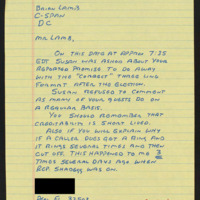 BRIAN LAMB
C-SPAN
DC
MR LAMB,
ON THIS DATE AT APPROX 7:35
EDT SUSAN WAS ASKED ABOUT YOUR
REPORTED PROMISE TO DO AWAY
WITH THE "CORRECT" THREE LINE
FORMAT AFTER THE ELECTION.
SUSAN REFUSED TO COMMENT
AS MANY OF YOUR GUESTS DO ON
A REGULAR BASIS.
YOU SHOULD REMEMBER THAT
CREDIBILITY IS SHORT LIVED.
ALSO IF YOU WILL EXPLAIN WHY
IF A CALLER DOES GET A RING AND
IT RINGS SEVERAL TIMES AND THEN
CUT OFF. THIS HAPPENED TO ME 3
TIMES SEVERAL DAYS AGO WHEN
REP. SHADEGG WAS ON.